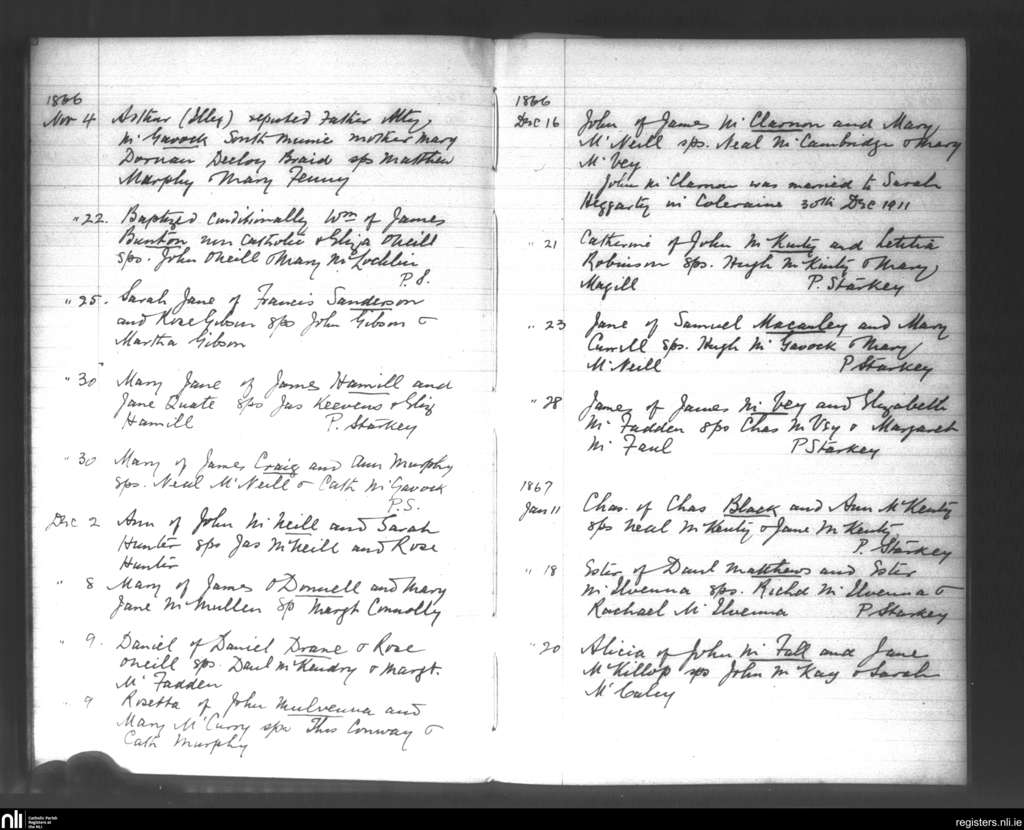 1866
Nov 4 Arthur (Illeg) reputed Father Alley
Mc Gavock South Munie mother Mary
Dornan Decloy Braid sps Matthew
Murphy & Mary Fenny
" 22. Baptized conditionally Wm of James
Bunton non Catholic & Eliza ONeill
sps. John ONeill & Mary McLochlin
P.S.
" 25. Sarah Jane of Francis Sanderson
and Rose Gibson sps John Gibson &
Martha Gibson
" 30 Mary Jane of James Hamill and
Jane Quate sps Jas Keevens & Eliz
Hamill P. Starkey
" 30 Mary of James Craig and Ann Murphy
sps. Neal McNeill & Cath McGavock
P.S.
Dec 2 Ann of John McNeill and Sarah
Hunter sps Jas McNeill and Rose
Hunter
" 8 Mary of James ODonnell and Mary
Jane McMullen sp Margt Connolly
" 9. Daniel of Daniel Drane & Rose
ONeill sps. Danl McKendry & Margt.
McFadden
" 9 Rosetta of John Mulvenna and
Mary McCurry sps Thos Conway &
Cath Murphy
1866
Dec 16 John of James McClarnon and Mary
McNeill sps. Neal McCambridge & Mary
McVey
John McClarnon was married to Sarah
Heggarty in Coleraine 30th Dec 1911
" 21 Catherine of John McKinty and Letitia
Robinson sps. Hugh McKinty & Mary
Magill P. Starkey
" 23 Jane of Samuel Macauley and Mary
Currell sps. Hugh McGavock & Mary
McNeill P Starkey
" 28 James of James McVey and Elizabeth
McFadden sps Chas McVey & Margaret
McFaul P Starkey
1867
Jan 11 Chas. of Chas Black and Ann McKenty
sps Neal McKenty & Jane McKenty
P. Starkey
" 18 Ester of Danl Matthews and Ester
McIlvenna sps. Richd McIlvenna &
Rachael McIlvenna P Starkey
" 20 Alicia of John McFall and Jane
McKillop sps John McKay & Sarah
McCaley
nli
Catholic Parish
Registers at
the NLI
registers.nli.ie